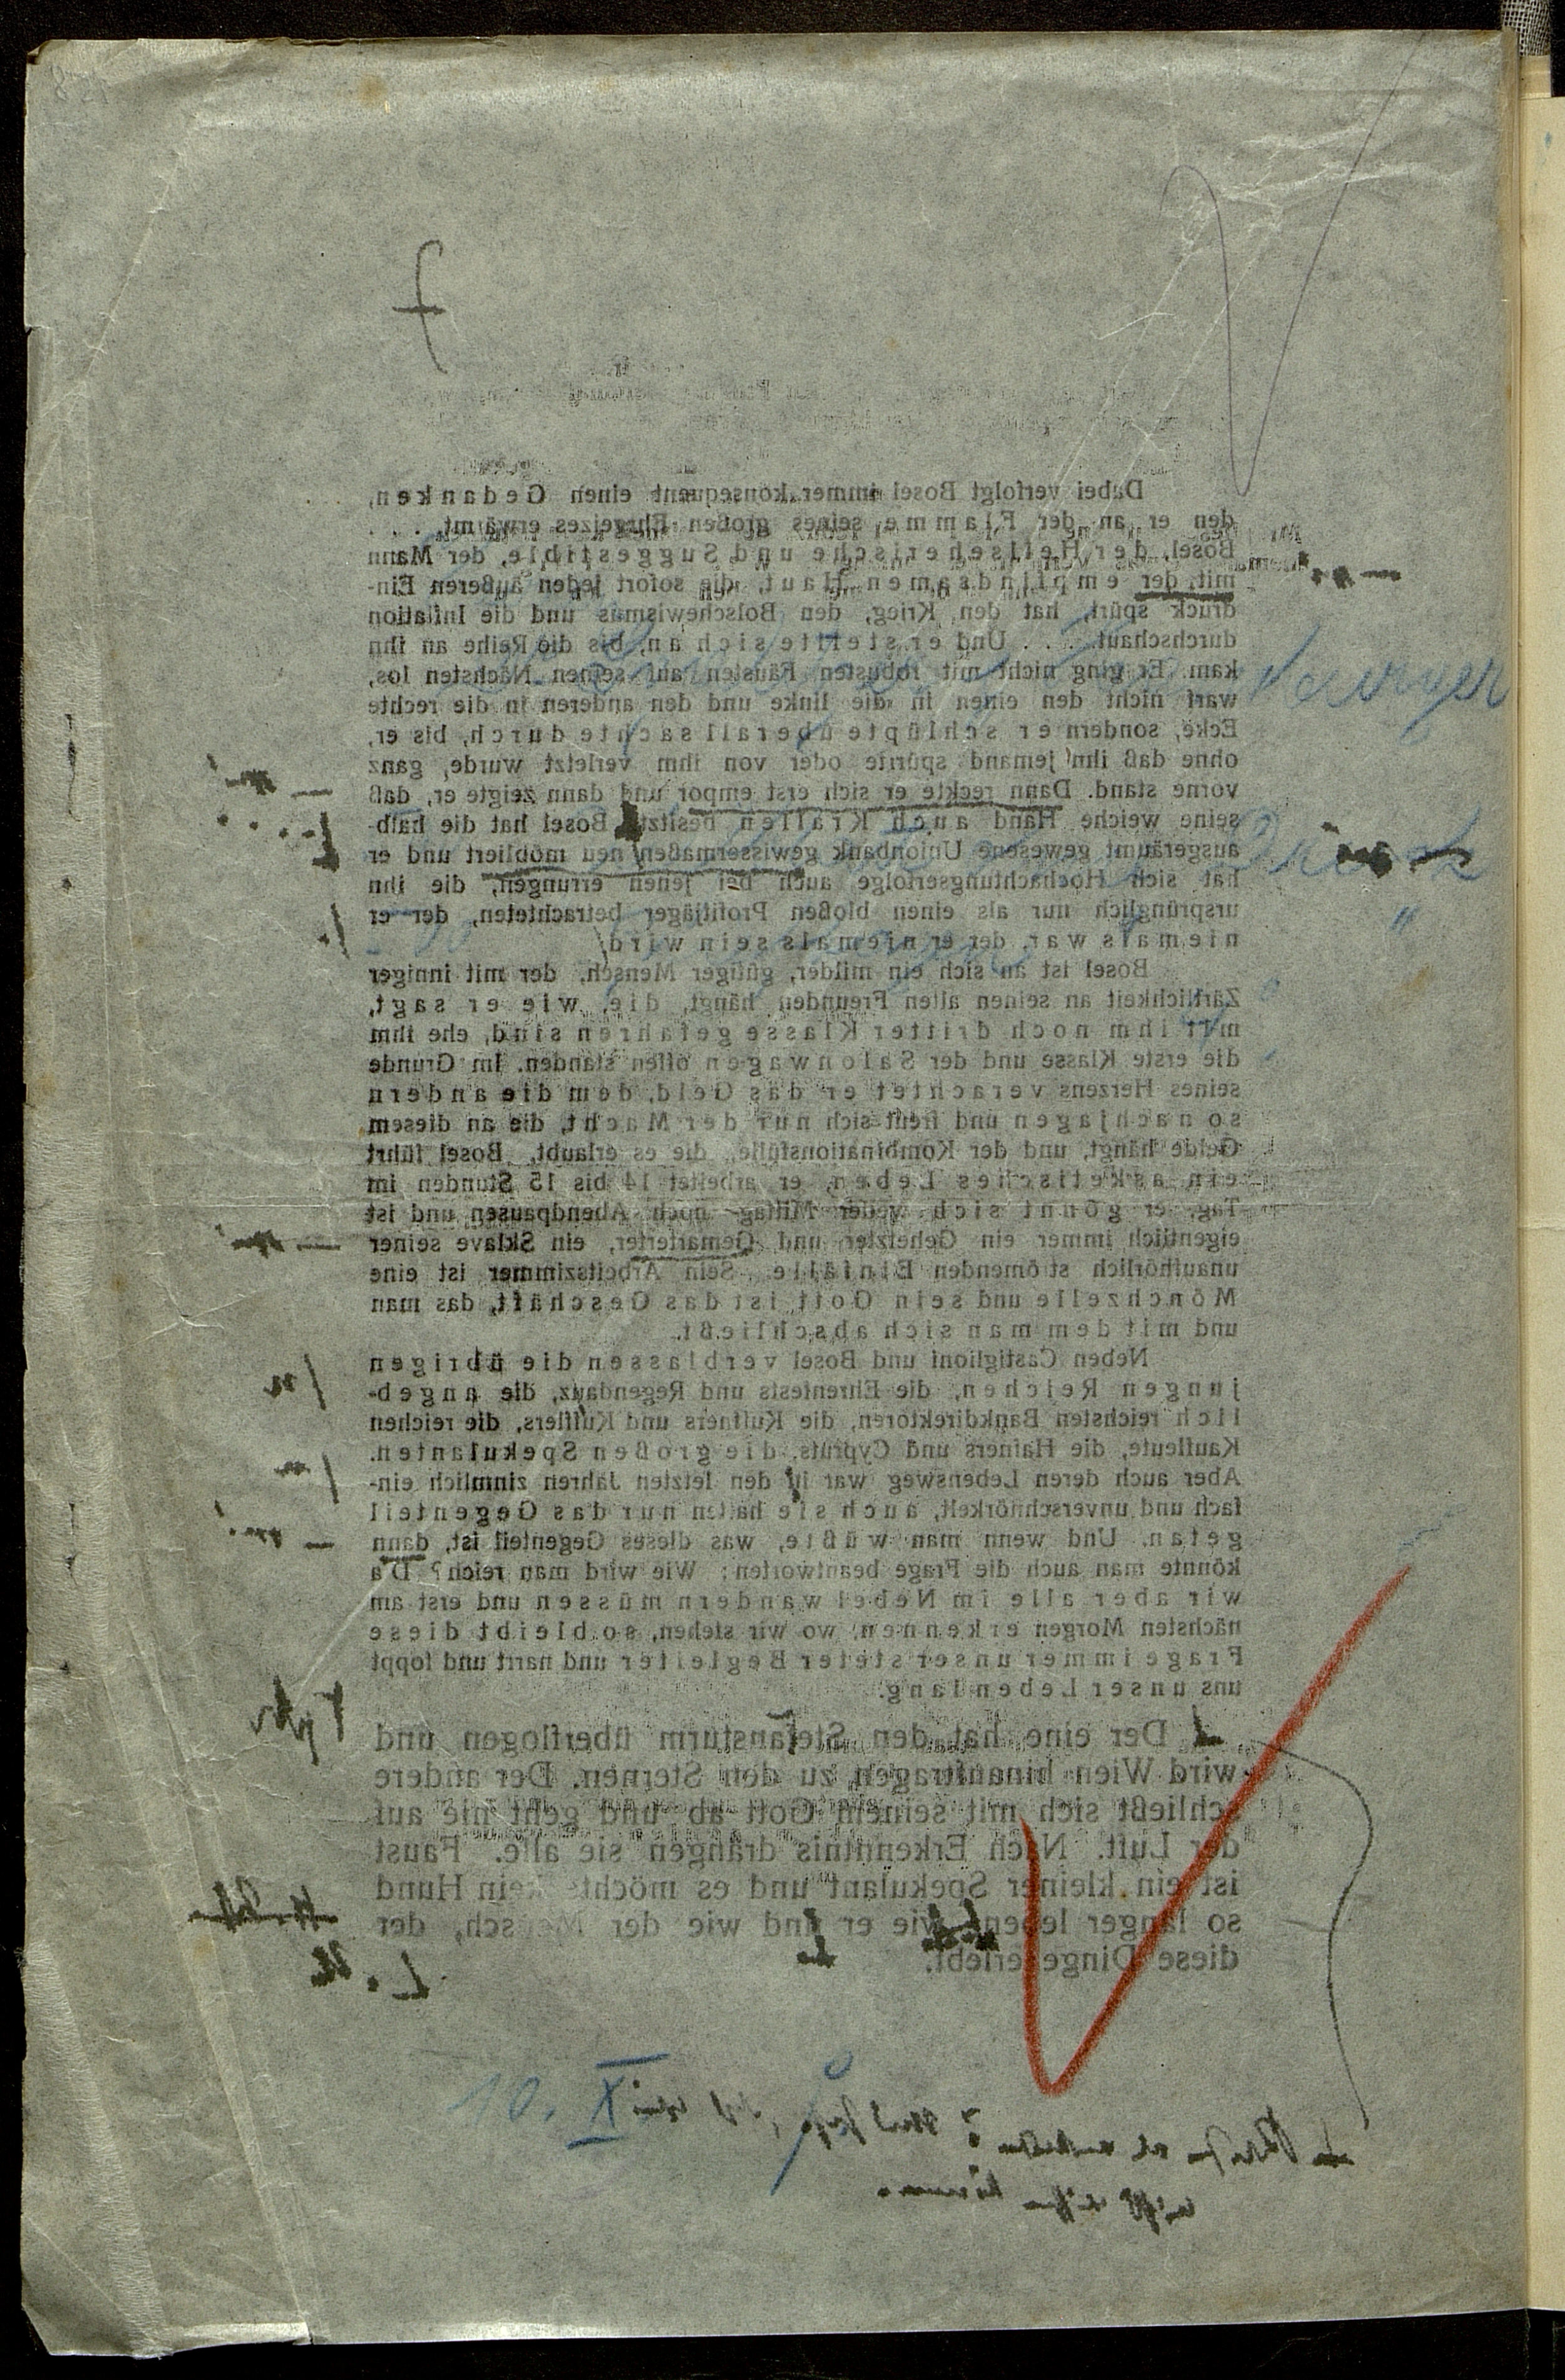 Dabei verfolgt Bosel immer konsequent einen Gedanken,
den er an der Flamme seines großen Ehrgeizes erwämt. . . .
Bosel, der Hellseherische und Suggestible, der Mann
mit der empfindsamen Haut, die sofort jeden äußeren Ein-
druck spürt, hat den Krieg, den Bolschewismus und die Inflation
durchschaut. . . . Und er stellte sich an, bis die Reihe an ihn
kam. Er ging nicht mit robusten Fäusten auf seinen Nächsten los,
warf nicht den einen in die linke und den anderen in die rechte
Ecke, sondern er schlüpte überall sachte durch, bis er,
ohne daß ihn jemand spürte oder von ihm verletzt wurde, ganz
vorne stand. Dann reckte er sich erst empor und dann zeigte er, daß
seine weiche Hand auch Krallen besitzt. Bosel hat die halb-
ausgeräumt gewesene Unionbank gewissermaßen neu möbliert und er
hat sich Hochachtungserfolge auch bei jenen errungen, die ihn
ursprünglich nur als einen bloßen Profitjäger betrachteten, der er
niemals war, der er niemals sein wird
Bosel ist an sich ein milder, gütiger Mensch, der mit inniger
Zärtlichkeit an seinen alten Freunden hängt, die, wie er sagt,
mit ihm noch dritter Klasse gefahren sind, ehe ihm
die erste Klasse und der Salonwagen offen standen. Im Grunde
seines Herzens verachtet er das Geld, dem die andern
so nachjagen und freut sich nur der Macht, die an diesem
Gelde hängt, und der Kombinationsfülle, die es erlaubt. Bosel führt
ein asketisches Leben, er arbeitet 14 bis 15 Stunden im
Tag, er gönnt sich weder Mittag- noch Abendpausen und ist
eigentlich immer ein Gehetzter und Gemarterter, ein Sklave seiner
unaufhörlich stömenden Einfälle. Sein Arbeitszimmer ist eine
Mönchzelle und sein Gott ist das Geschäft, das man
und mit dem man sich abschließt.
Neben Castiglioni und Bosel verblassen die übrigen
jungen Reichen, die Ehrenfests und Regendanz, die angeb-
lich reichsten Bankdirektoren, die Kuffners und Kufflers, die reichen
Kaufleute, die Hafners und Cypruts, die großen Spekulanten.
Aber auch deren Lebensweg war in den letzten Jahren zimmlich ein-
fach und unverschnörkelt, auch sie hatten nur das Gegenteil
getan. Und wenn man wüßte, was dieses Gegenteil ist, dann
könnte man auch die Frage beantworten: Wie wird man reich? Da
wir aber alle im Nebel wandern müssen und erst am
nächsten Morgen erkennen, wo wir stehen, so bleibt diese
Frage immer unser steter Begleiter und narrt und foppt
uns unser Leben lang.
Der eine hat den Stefansturm überflogen und
wird Wien hinauftragen zu den Sternen. Der andere
schließt sich mit seinem Gott ab und geht nie auf
der Luft. Nach Erkenntnis drängen sie alle. Faust
ist ein kleiner Spekulant und es möchte kein Hund
so länger leben wie er und wie der Mensch, der
diese Dinge erlebt.
10. X